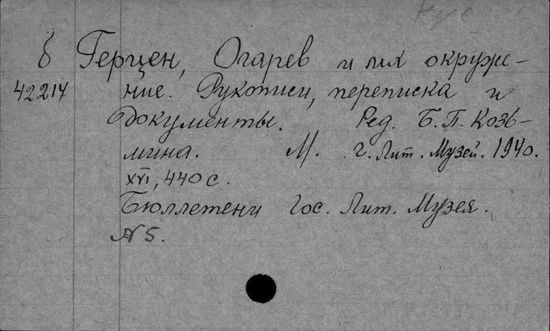 Кус
б Герцен, Огарев и их окруже-
42214 ние. Рукописи, переписка и
документы. Ред. Б.П. Козь-
мина. М. г. Лит. Музей. 1940.
XVI, 440 с.
Бюллетени Гос. Лит. Музея.
№ 5.